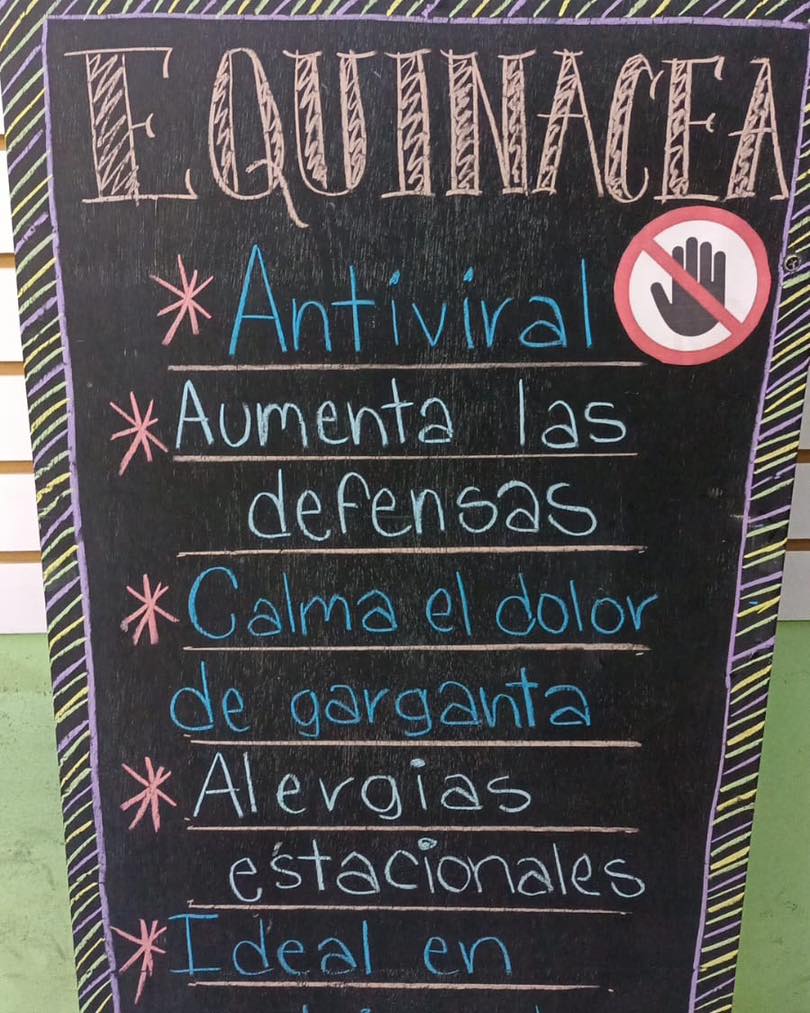 EQUINACEA
* Antiviral
* Aumenta las
defensas
* Calma el dolor
de garganta
* Alergias
estacionales
* Ideal en